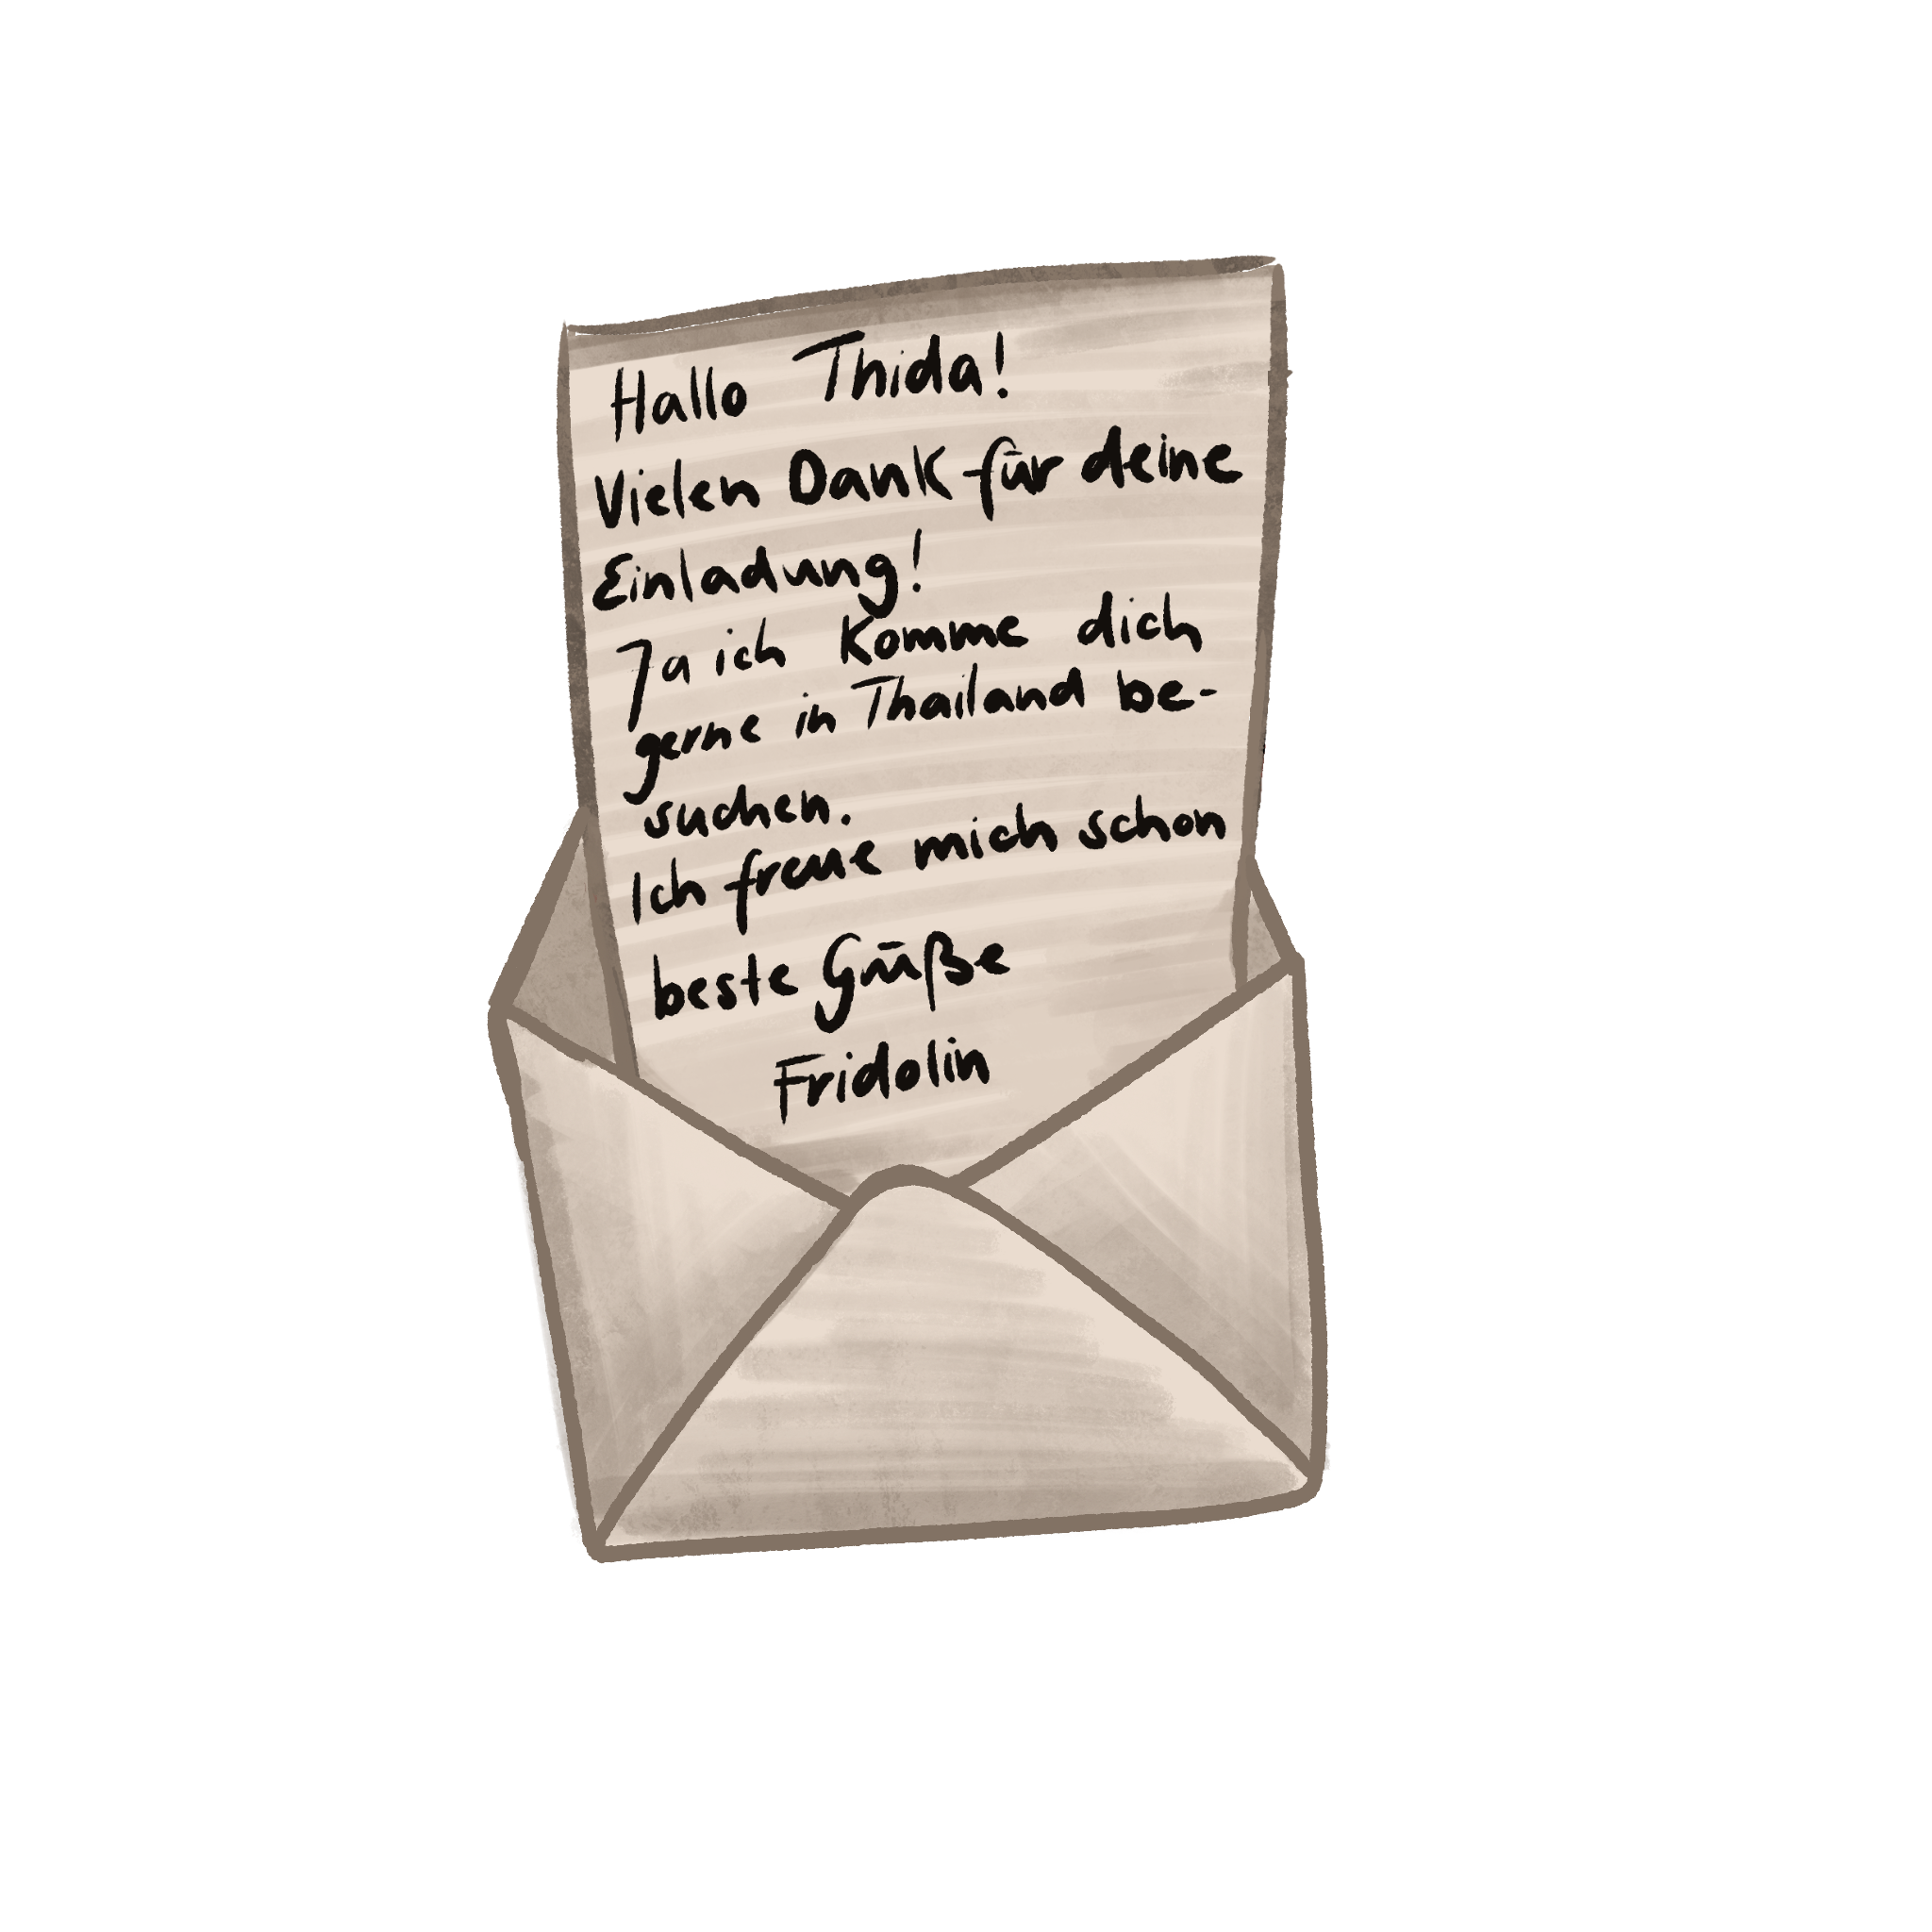 Hallo Thida!
Vielen Dank für deine
Einladung!
Ja ich komme dich
gerne in Thailand be-
suchen.
Ich freue mich schon
beste Grüße
Fridolin